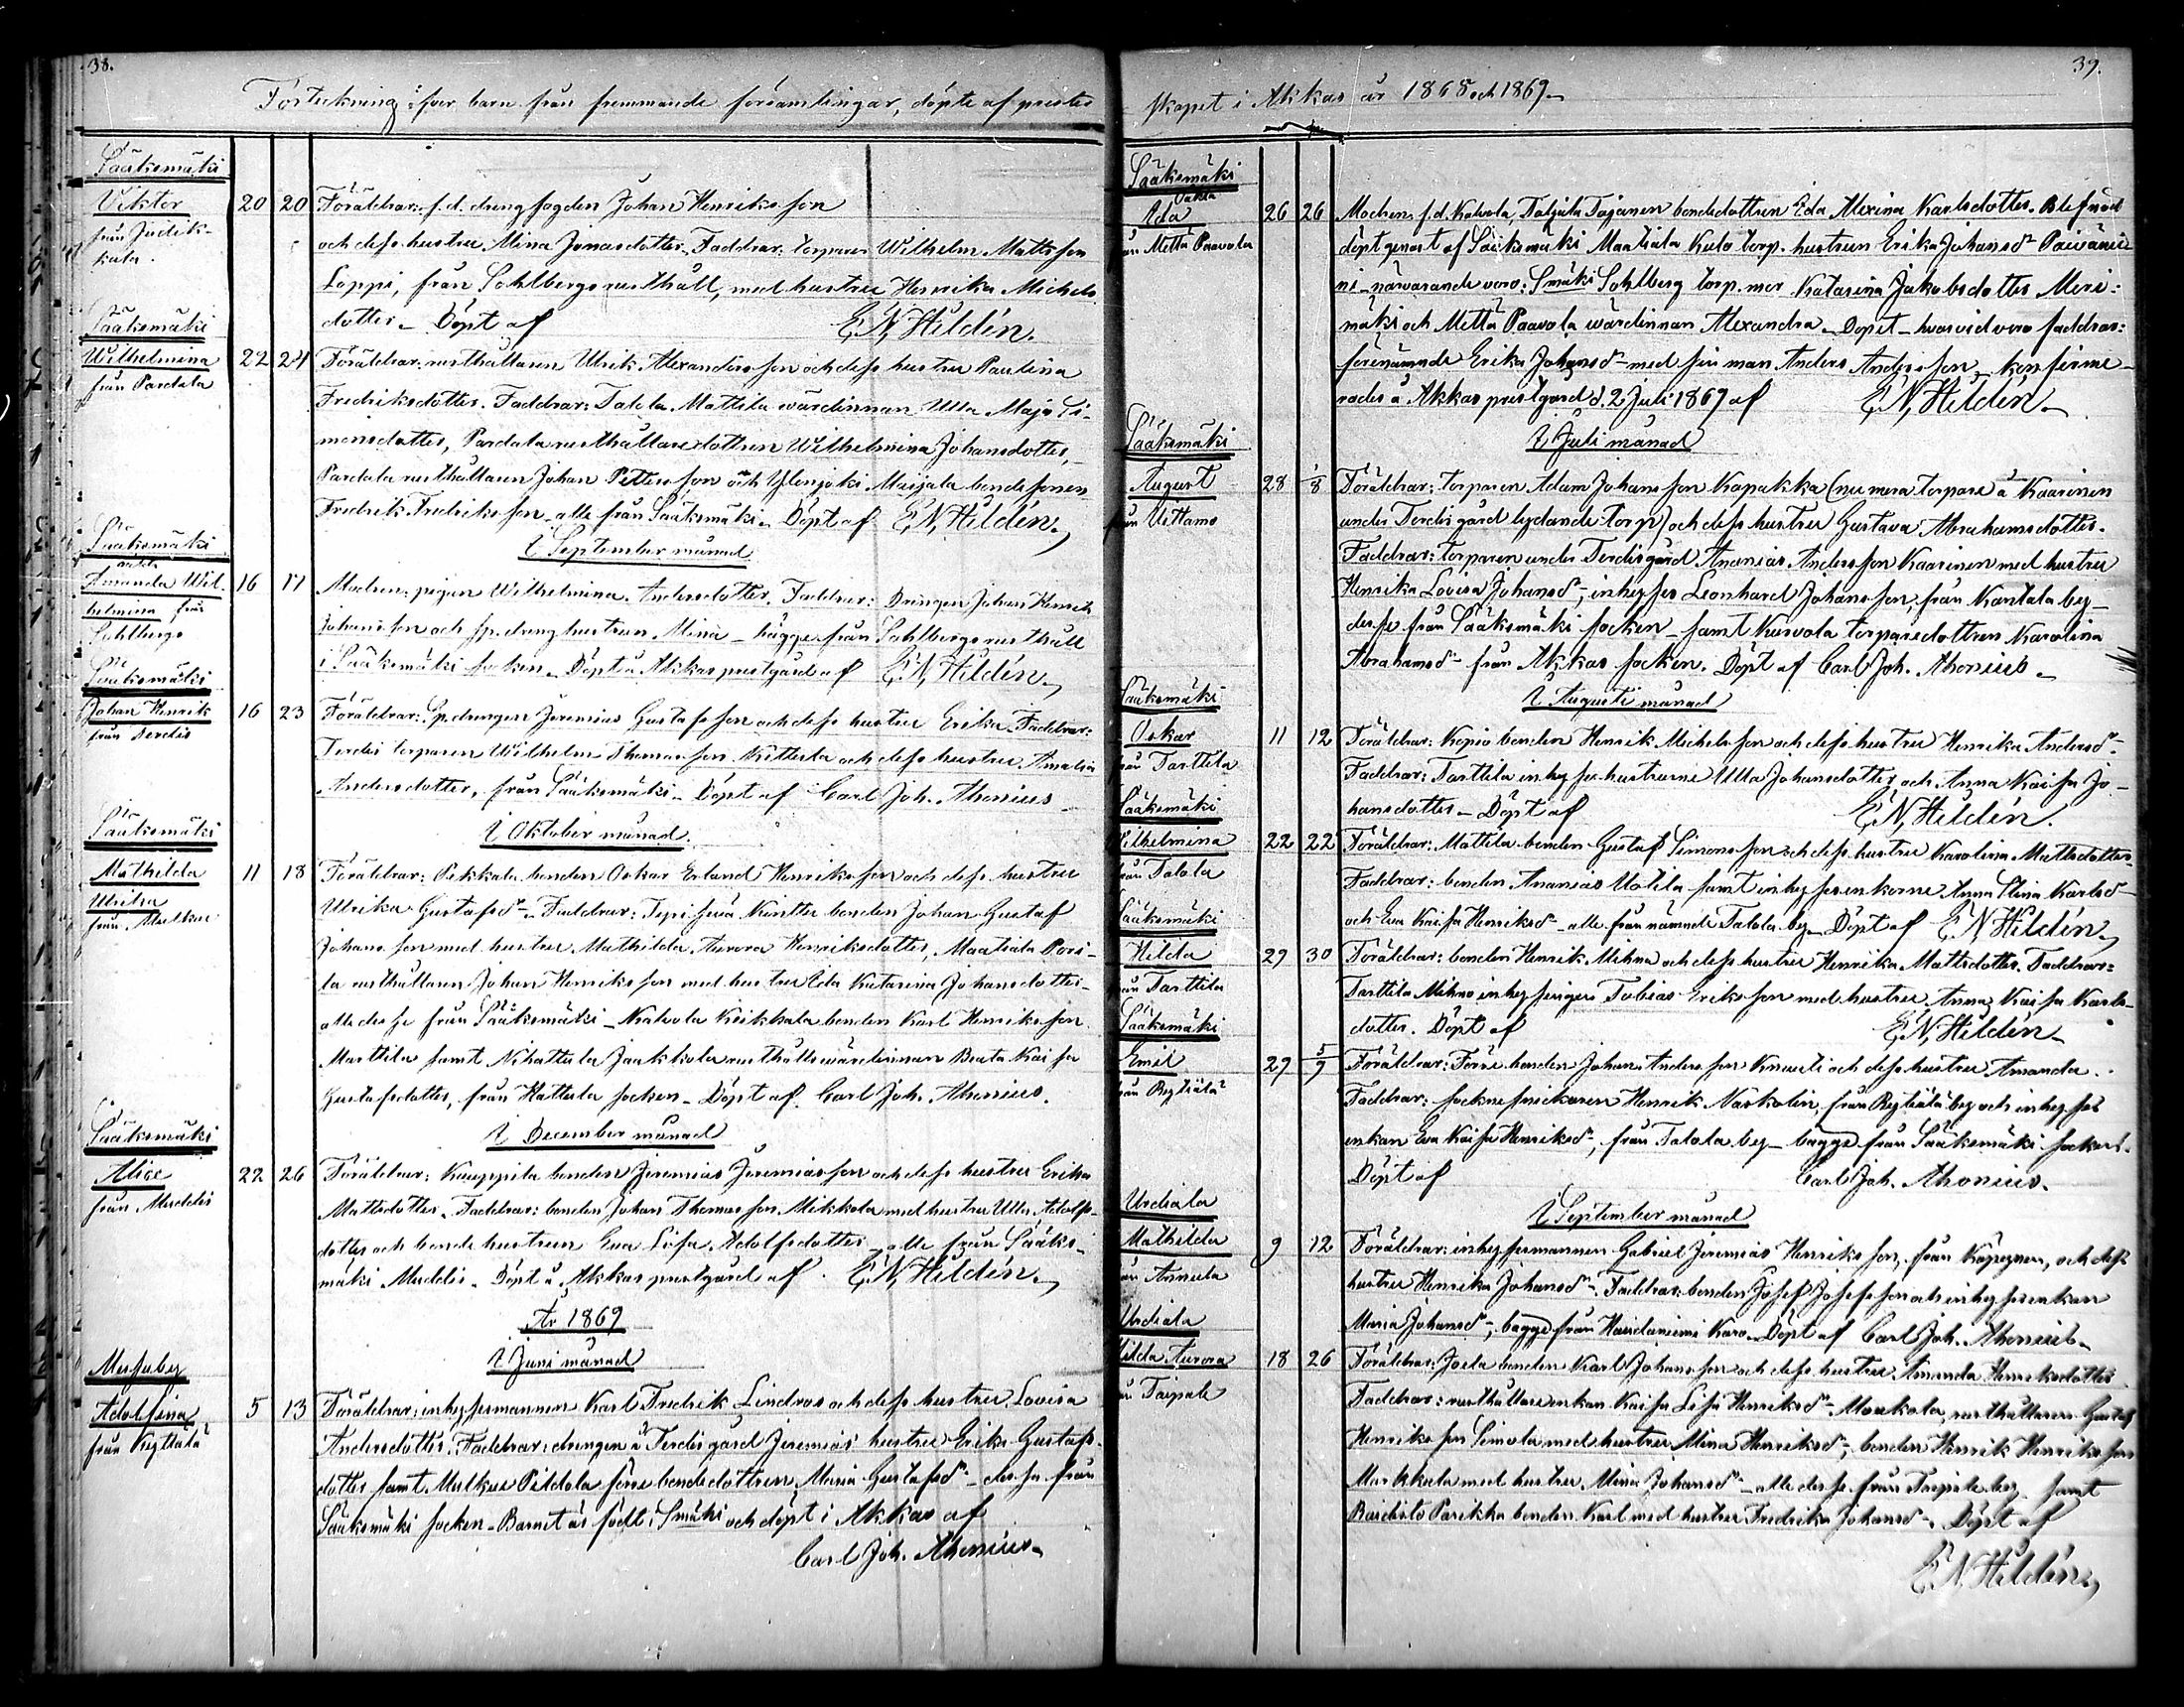 38.
Förteckning öfver barn från fremmande församlingar, döpte af prester
Sääksmäki
Viktor
från Judik-
kala.
20 20 Föräldrar: f. d. drengfogden Johan Henriksson
och dess hustru Mina Jonasdotter. Faddrar: torparen Wilhelm Mattsson
Loppi, från Sahlbergs rusthåll, med hustru Henrika Michels-
dotter. Döpt af E. N. Hildén.
Sääksmäki
Wilhelmina
från Pardala
22 24 Föräldrar: rusthållaren Ulrik Alexandersson och dess hustru Paulina
Fredriksdotter. Faddrar: Talola Mattila wärdinnan Ulla Maja Si-
monsdotter, Pardala rusthållaredottren Wilhelmina Johansdotter,
Pardala rusthållaren Johan Pettersson och Ylenjoki Maijala bondesonen
Fredrik Fredriksson, alle från Sääksmäki. Döpt af E. N. Hildén.
I September månad
Sääksmäki
oäkta
Amanda Wil-
helmina från
Sahlbergs
16 17 Modren: pigan Wilhelmina Andersdotter. Faddrar: Drängen Johan Henrik
Johansson och sp. dreng hustrun Mina - bägge från Sahlbergs rusthåll
i Sääksmäki socken. Döpt å Akkas prestgård af E. N. Hildén.
Sääksmäki
Johan Henrik
från Terdis
16 23 Föräldrar: Sp. drengen Jeremias Gustafsson och dess hustru Erika. Faddrar:
Terdis torparen Wilhelm Thomasson Kittula och dess hustru Amalia
Andersdotter, från Sääksmäki. Döpt af Carl Joh. Ahonius
I Oktober månad.
Sääksmäki
Mathilda
Ulrika
från
11 18 Föräldrar: Pekkala bonden Oskar Erland Henriksson och dess hustru
Ulrika Gustafsdr. Faddrar: Kinttu bonden Johan Gustaf
Johansson med hustru Mathilda Aurora Henriksdotter, Maatiala Pori-
la rusthållaren Johan Henriksson med hustru Eda Katarina Johansdotter -
alle desse från Sääksmäki - Kalvola Keikkala bonden Karl Henriksson
Marttila samt Nihattula Jaakkola rusthålls wärdinnan Beata Kaisa
Gustafsdotter, från Hattula socken. Döpt af Carl Joh. Ahonius.
I December månad
Sääksmäki
Alice
från Muddis
22 26 Föräldrar: Kauppila bonden Jeremias Jeremiasson och dess hustru Erika
Mattsdotter. Faddrar: bonden Johan Thomasson Mikkola med hustru Ulla Adolfs-
dotter och bonde hustrun Eva Lisa Adolfsdotter - alle från Sääks-
mäki Muddis. Döpt å Akkas prestgård af E. N. Hildén.
År 1869
I Juni månad
Adolfina
från
5 13 Föräldrar: inhysesmannen Karl Fredrik Lindros och dess hustru Lovisa
Andersdotter. Faddrar: drengen å Terdis gård Jeremias' hustru Erika Gustafs-
dotter samt bondedottren Maria Gustafsdr - desse från
Sääksmäki socken. Barnet är född i Smäki och döpt i Akkas af
Carl Joh. Ahonius.
39.
skapet i Akkas år 1868 och 1869.
Sääksmäki
oäkta
Ida
från Mettä Paavola
26 26 Modren f. d. Kalvola Taljala bondedottren Eda Alexina Karlsdotter. Blef nöd-
döpt genast af Sääksmäki Maatiala torp. hustrun Erika Johansdr Päivänie-
mi - närvarande voro: Smäki Sahlberg torp. mor Katarina Jakobsdotter Meri-
mäki och Mettä Paavola wärdinnan Alexandra. Dopet - hwarvid voro faddrar:
förenämnde Erika Johansdr med sin man Anders Andersson - konfirme-
rades å Akkas prestgård d. 2 Juli 1869 af E. N. Hildén.
I Juli månad
Sääksmäki
August
från Uittamo
28 1/8 Föräldrar: torparen Adam Johansson Kapakka (nu mera torpare å Kaarinen
under Terdis gård lydande torp) och dess hustru Gustava Abrahamsdotter.
Faddrar: torparen under Terdis gård Ananias Andersson Kaarinen med hustru
Henrika Lovisa Johansdr, inhyses Leonhard Johansson, från Kantala by -
desse från Sääksmäki socken - samt Kurvola torparedottren Karolina
Abrahamsdr från Akkas socken. Döpt af Carl Joh. Ahonius.
I Augusti månad
Sääksmäki
Oskar
från Tarttila
11 12 Föräldrar: Kopio bonden Henrik Michelsson och dess hustru Henrika Andersdr.
Faddrar: Tarttila inhyses hustrurne Ulla Johansdotter och Anna Kaisa Jo-
hansdotter. Döpt af E. N. Hildén.
Sääksmäki
Wilhelmina
från Talola
22 22 Föräldrar: Mattila bonden Gustaf Simonsson och dess hustru Karolina Mattsdotter.
Faddrar: bonden Ananias Uotila samt inhysesenkorne Anna Stina Karlsdr
och Eva Kaisa Henriksdr - alle från nämnde Talola by. Döpt af E. N. Hildén.
Sääksmäki
Hilda
från Tarttila
29 30 Föräldrar: bonden Henrik Mihna och dess hustru Henrika Mattsdotter. Faddrar:
Tarttila inhysesinge Tobias Eriksson med hustru Anna Kaisa Karls-
dotter. Döpt af E. N. Hildén.
Sääksmäki
Emil
29 5/9 Föräldrar: bonden Johan Andersson Knuuti och dess hustru Amanda.
Faddrar: sockne snickaren Henrik Naskolin, från by och inhyses
enkan Eva Kaisa Henriksdr, från Talola by - bägge från Sääksmäki socken.
Döpt af Carl Joh. Ahonius.
I September månad
Urdiala
Mathilda
från Annula
9 12 Föräldrar: inhysesmannen Gabriel Jeremias Henriksson, från och dess
hustru Henrika Johansdr. Faddrar: bonden Josef Josefsson och inhysesenkan
Maria Johansdr, bägge från Haudaniemi Karo. Döpt af Carl Joh. Ahonius.
Urdiala
Hilda Aurora
från Taipale
18 26 Föräldrar: Joela bonden Karl Johansson och dess hustru Amanda Henriksdotter
Faddrar: rusthållareenkan Kaisa Lisa Henriksdr Maukola, rusthållaren Gustaf
Henriksson Simola med hustru Mina Henriksdr, bonden Henrik Henriksson
Markkula med hustru Mina Johansdr - alle desse från Taipale by - samt
Parikka bonden Karl med hustru Fredrika Johansdr. Döpt af
E. N. Hildén.